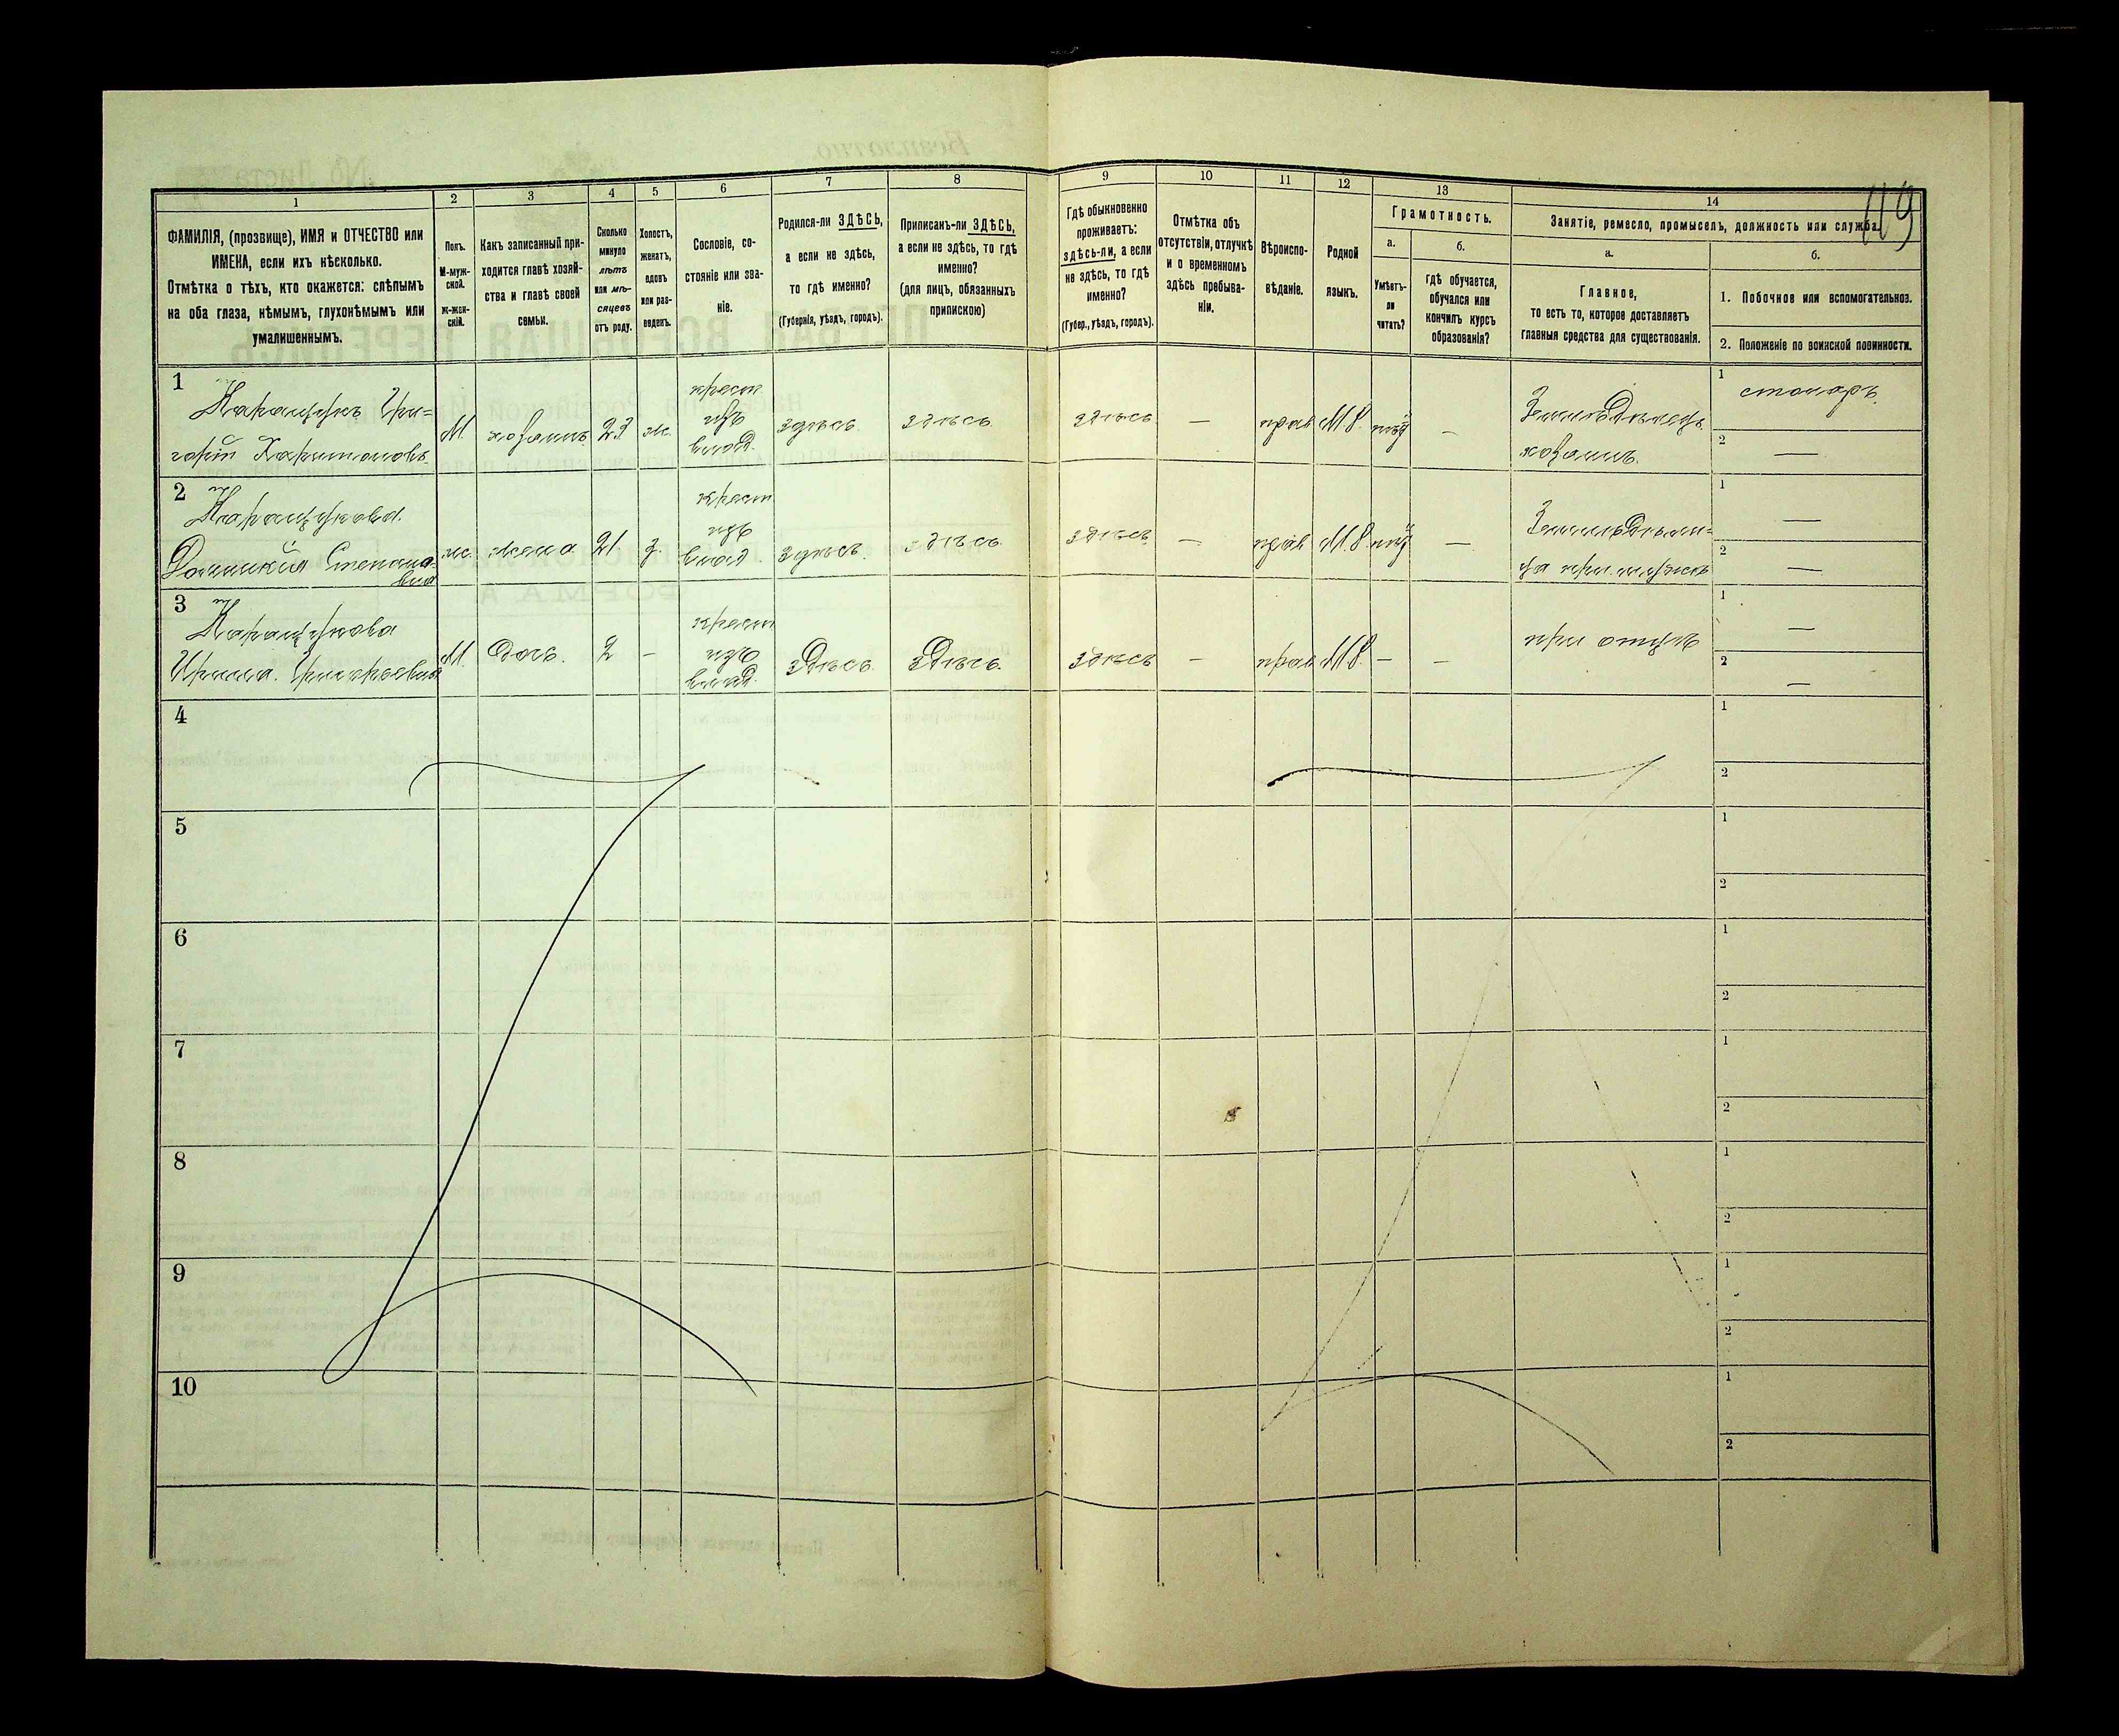 119
1
2
3
4
5
6
7
8
9
10
11
12
13
14
ФАМИЛІЯ, (прозвище), ИМЯ и ОТЧЕСТВО или
ИМЕНА, если ихъ нѣсколько.
Отмѣтка о тѣхъ, кто окажется: слѣпымъ
на оба глаза, нѣмымъ, глухонѣмымъ или
умалишеннымъ.
Полъ.
М-муж-
ской.
ж-жен-
скій.
Какъ записанный при-
ходится главѣ хозяй-
ства и главѣ своей
семьи.
Сколько
минуло
лѣтъ
или мѣ-
сяцевъ
отъ роду.
Холостъ,
женатъ,
вдовъ
или раз-
веденъ.
Сословіе, со-
стояніе или зва-
ніе.
Родился-ли ЗДѢСЬ,
а если не здѣсь,
то гдѣ именно?
(Губернія, уѣздъ, городъ).
Приписанъ-ли ЗДѢСЬ,
а если не здѣсь, то гдѣ
именно?
(для лицъ, обязанныхъ
припискою)
Гдѣ обыкновенно
проживаетъ:
здѣсь-ли, а если
не здѣсь, то гдѣ
именно?
(Губер., уѣздъ, городъ).
Отмѣтка объ
отсутствіи, отлучкѣ
и о временномъ
здѣсь пребыва-
ніи.
Вѣроиспо-
вѣданіе.
Родной
языкъ.
Грамотность.
а.
Умѣетъ-
ли
читать?
б.
гдѣ обучается,
обучался или
кончилъ курсъ
образованія?
Занятіе, ремесло, промыселъ, должность или служба.
а.
Главное,
то есть то, которое доставляетъ
главныя средства для существованія.
б.
1. Побочное или вспомогательное.
2. Положеніе по воинской повинности.
1
Гри=
горій Харитоновъ
М.
хозяинъ
23
ж.
крест
изъ
влад.
здѣсь
здѣсь
здѣсь
—
прав
М.Р.
—
Земледѣлецъ
хозяинъ.
1 столяръ.
2 —
2
Степано-
вна
ж.
жена
21
з.
крест
изъ
влад.
здѣсь.
здѣсь
здѣсь
—
прав
М.Р.
—
Земледѣли=
ца при мужѣ
1 —
2 —
3
Ирина. Григорьевна
М.
дочь.
2
—
крест
изъ
влад.
здѣсь
здѣсь.
здѣсь
—
прав
М.Р.
—
—
при отцѣ
1 —
2 —
4
1
2
5
1
2
6
1
2
7
1
2
8
1
2
9
1
2
10
1
2